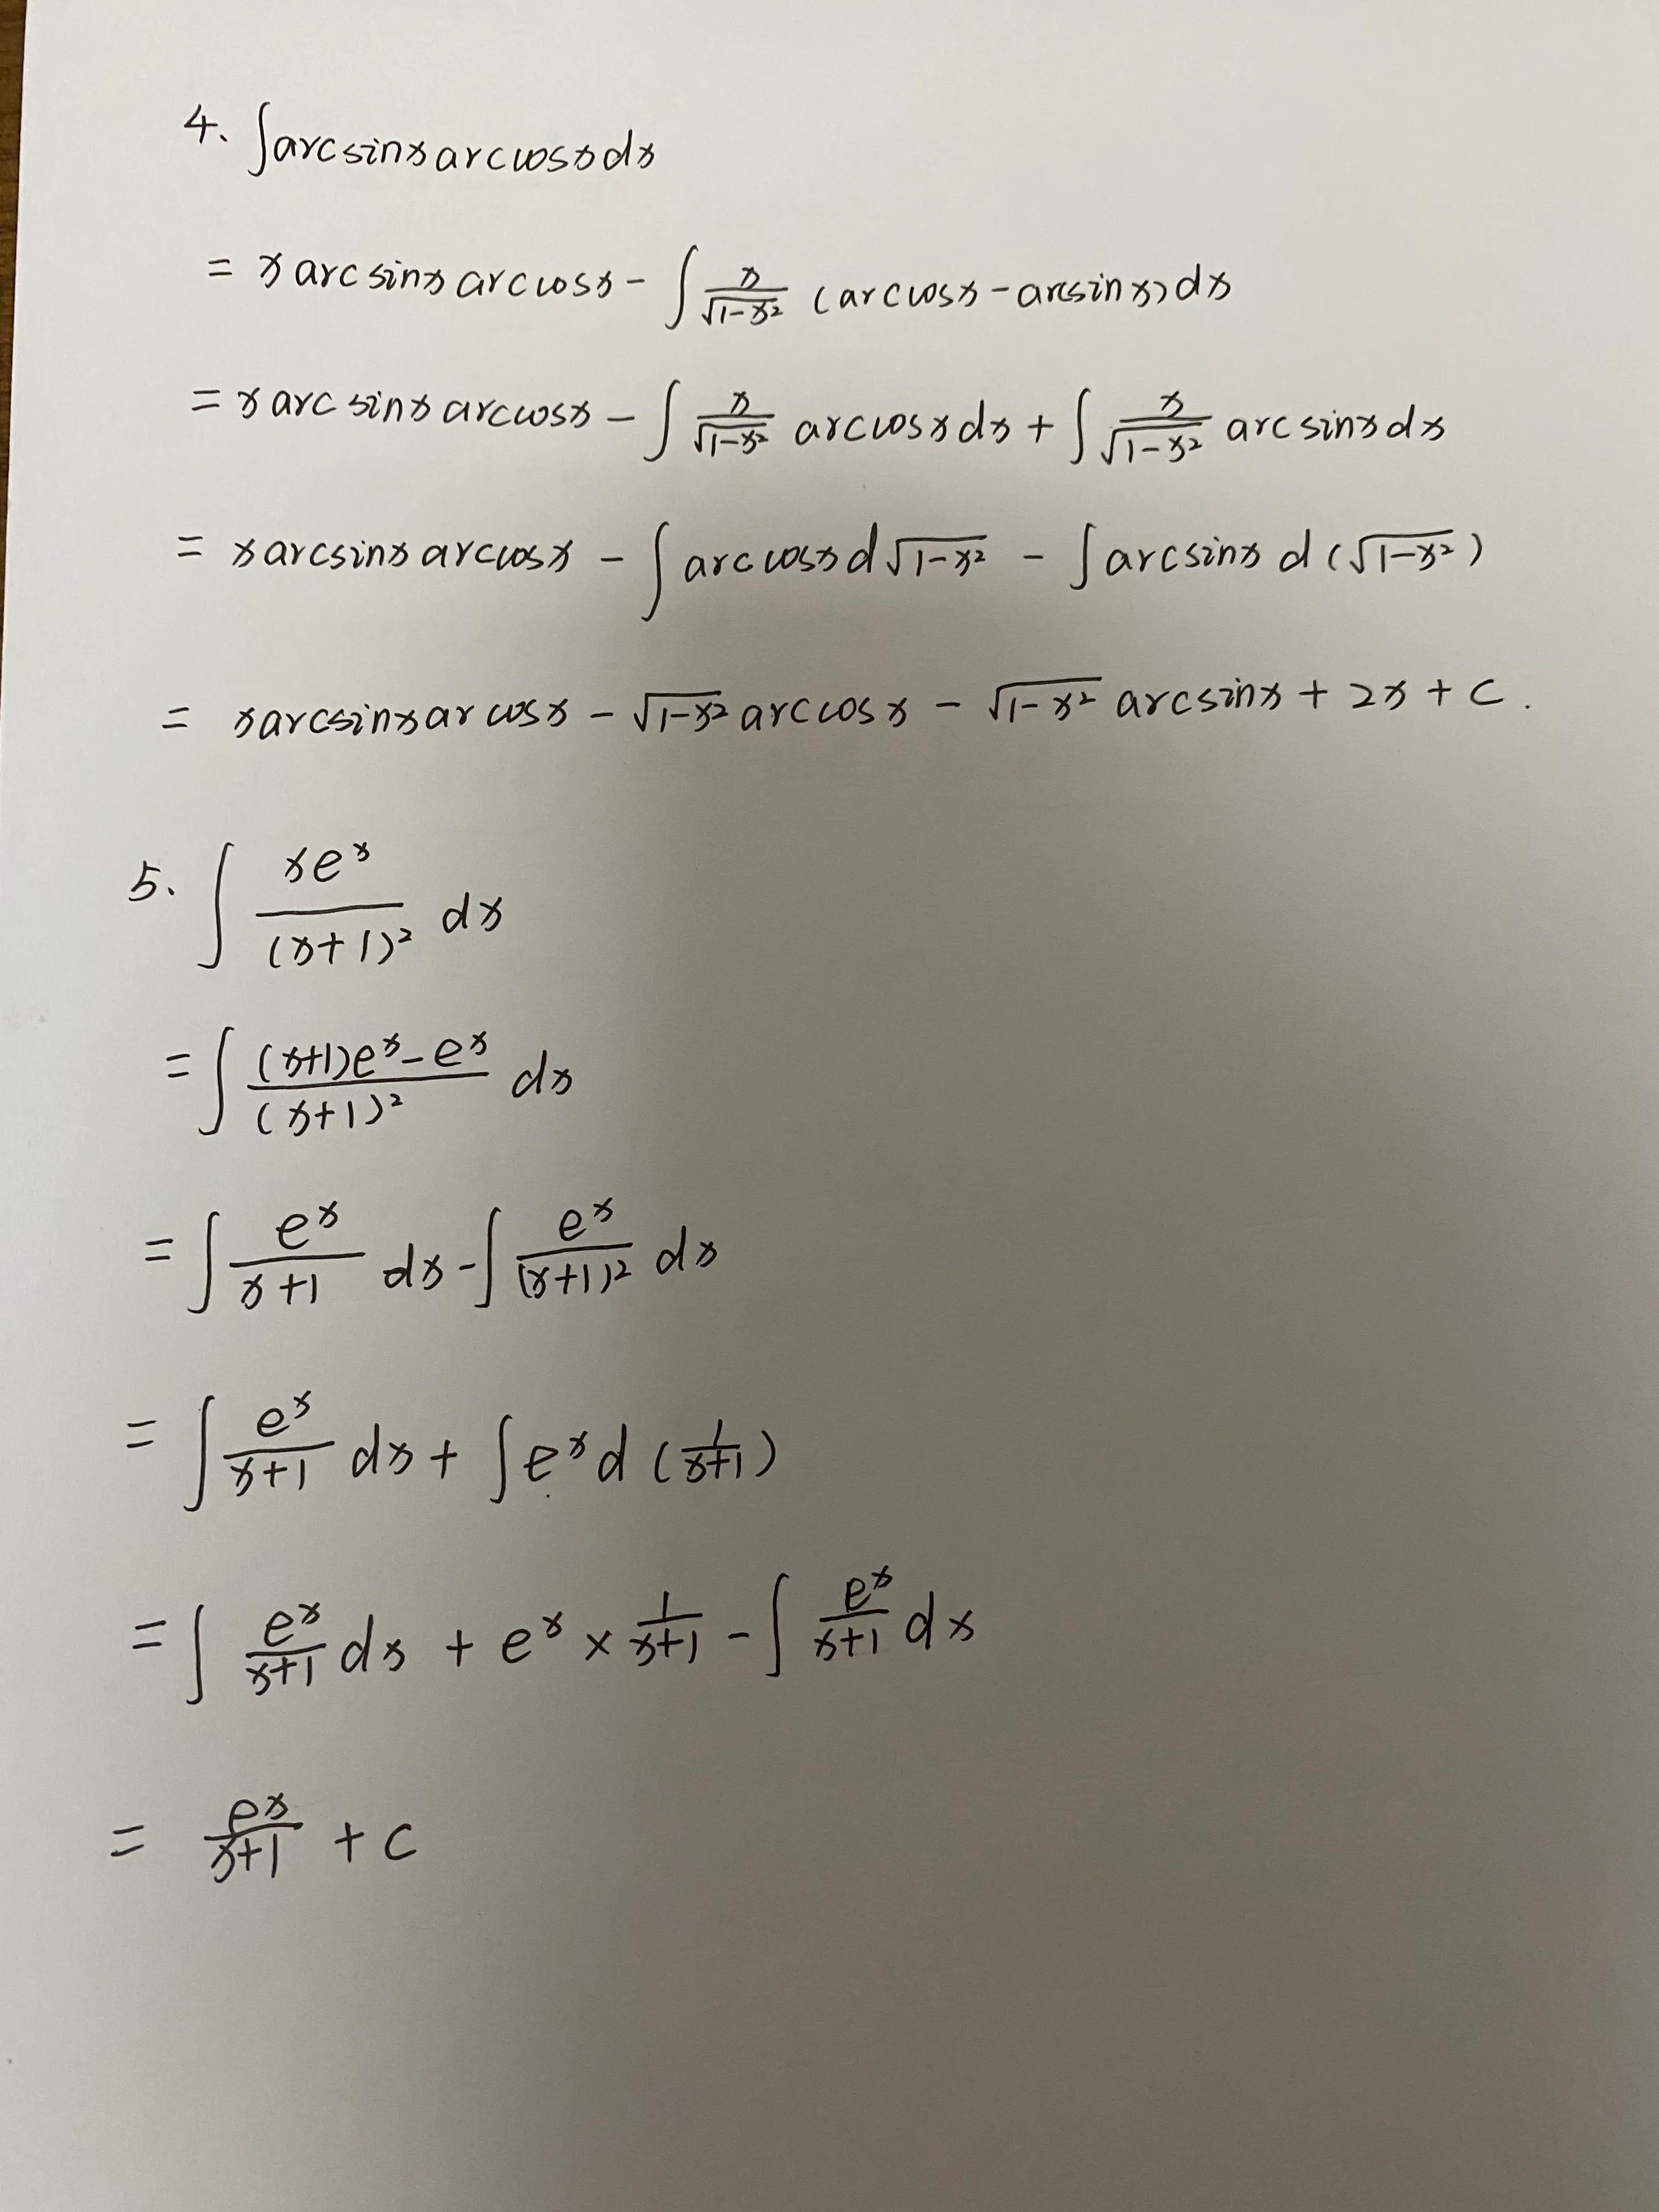 4. ∫arcsinx arccosx dx
= x arcsinx arccosx - ∫ x/√(1-x²) (arccosx - arcsinx) dx
= x arcsinx arccosx - ∫ x/√(1-x²) arccosx dx + ∫ x/√(1-x²) arcsinx dx
= x arcsinx arccosx - ∫ arccosx d√(1-x²) - ∫ arcsinx d(√(1-x²))
= x arcsinx arcosx - √(1-x²) arccosx - √(1-x²) arcsinx + 2x + C.
5. ∫ xe^x/(x+1)² dx
= ∫ ((x+1)e^x - e^x)/(x+1)² dx
= ∫ e^x/(x+1) dx - ∫ e^x/(x+1)² dx
= ∫ e^x/(x+1) dx + ∫ e^x d(1/(x+1))
= ∫ e^x/(x+1) dx + e^x × 1/(x+1) - ∫ e^x/(x+1) dx
= e^x/(x+1) + C